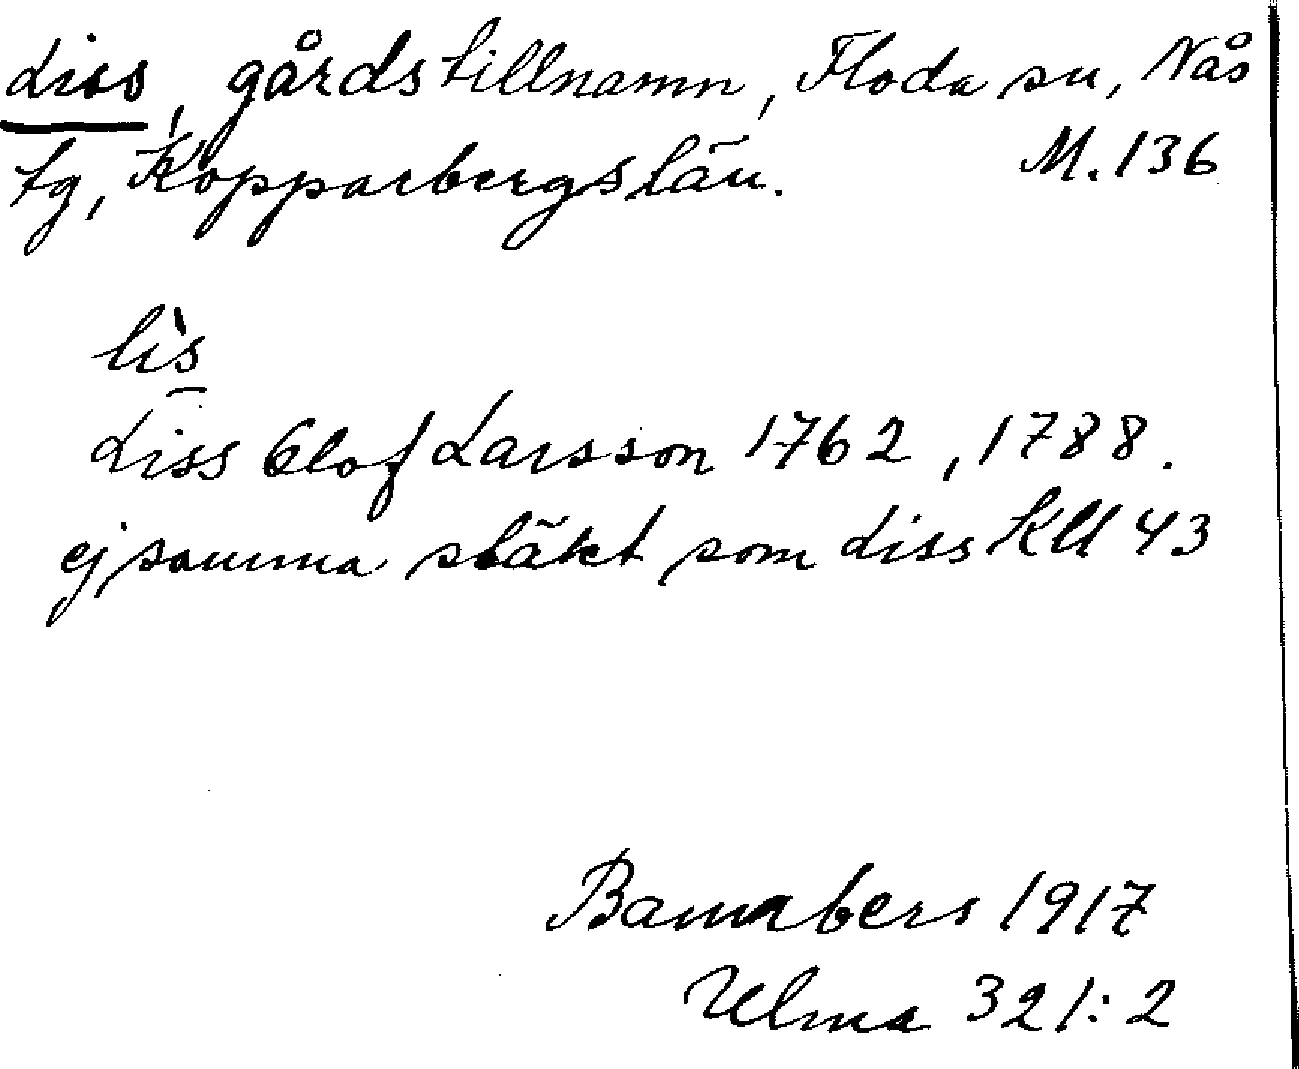 Liss, gårdstillnamn, Floda sn, Nås
tg, Kopparbergs län. M. 136
lìs
Liss Olof Larsson 1762, 1788.
ej samma släkt som Liss KU 43
Bannbers 1917
Ulma 321:2